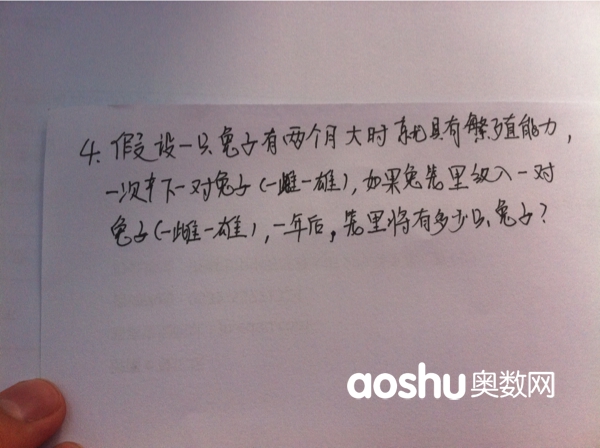 4. 假设一只兔子有两个月大时就具有繁殖能力，
一次产下一对兔子(一雌一雄)，如果兔笼里放入一对
兔子(一雌一雄)，一年后，笼里将有多少只兔子？
aoshu奥数网